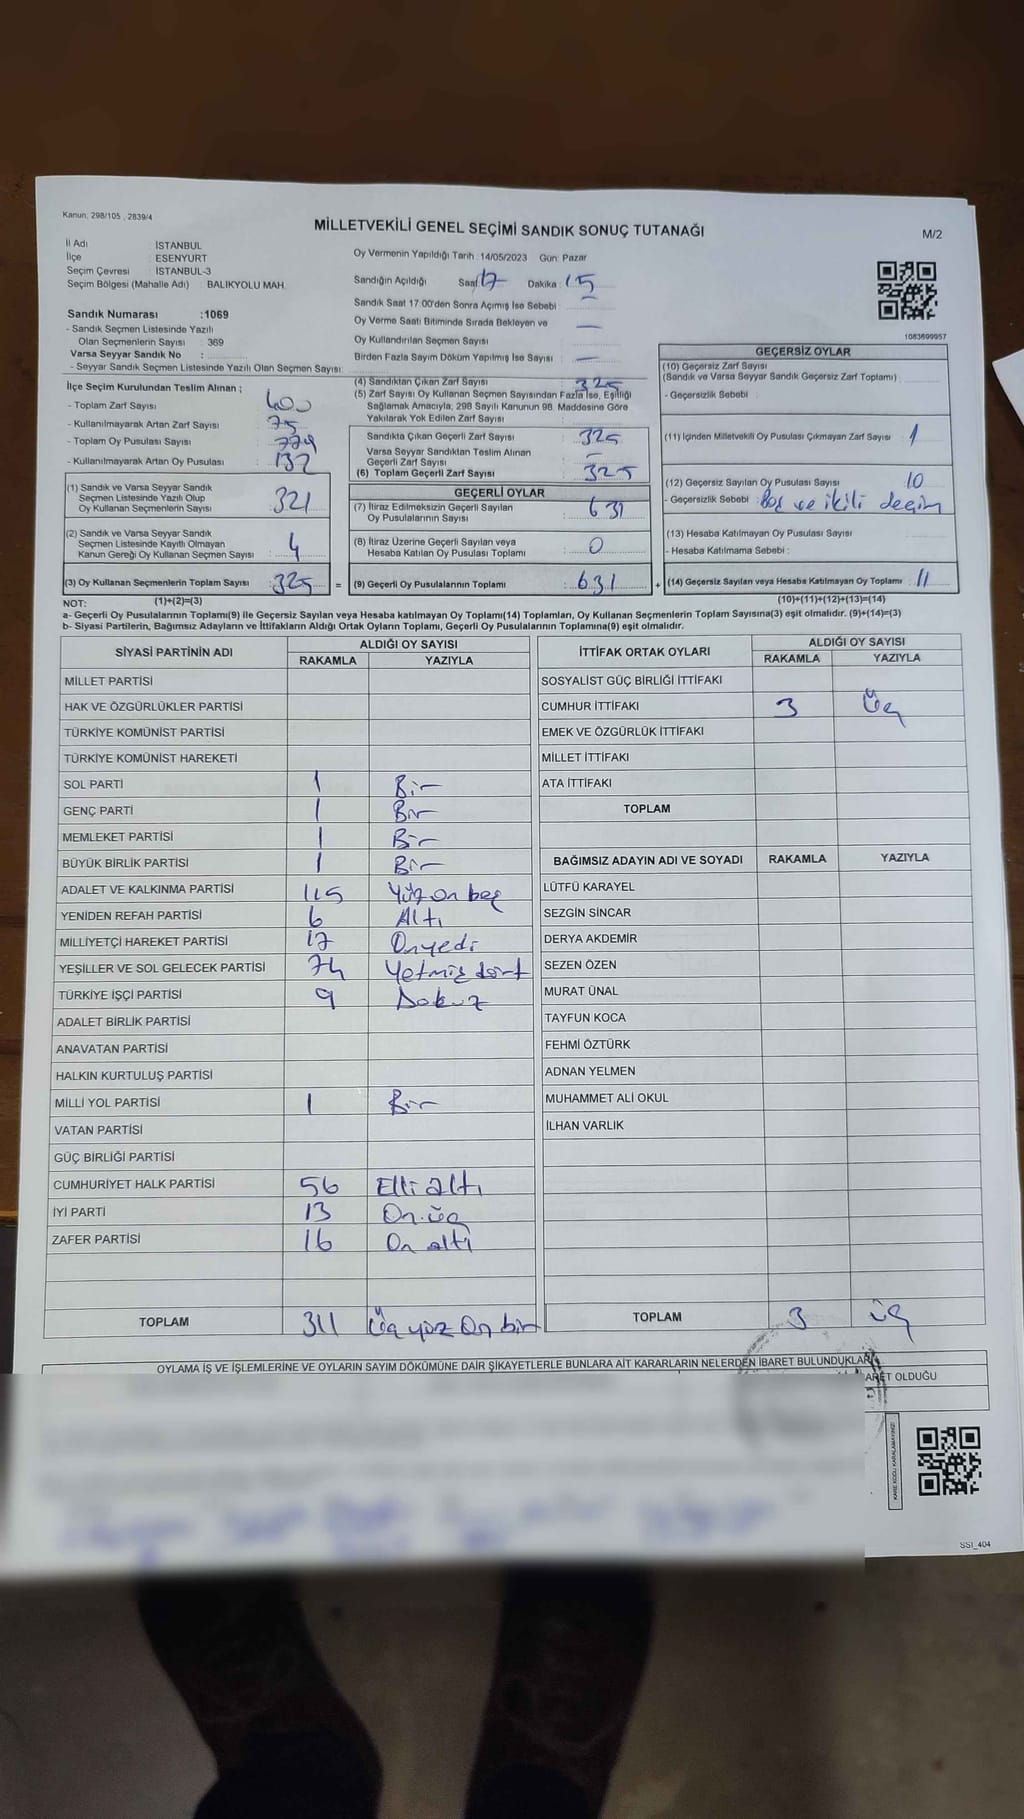 Kanun, 298/105 , 2839/4
MİLLETVEKİLİ GENEL SEÇİMİ SANDIK SONUÇ TUTANAĞI
M/2
İl Adı : İSTANBUL
İlçe : ESENYURT
Seçim Çevresi : İSTANBUL-3
Seçim Bölgesi (Mahalle Adı) : BALIKYOLU MAH.
Oy Vermenin Yapıldığı Tarih : 14/05/2023 Gün: Pazar
Sandığın Açıldığı Saat 17 Dakika : 15
Sandık Saat 17.00'den Sonra Açmış İse Sebebi : –
Oy Verme Saati Bitiminde Sırada Bekleyen ve –
Oy Kullandırılan Seçmen Sayısı
Birden Fazla Sayım Döküm Yapılmış İse Sayısı : –
1083699957
Sandık Numarası :1069
- Sandık Seçmen Listesinde Yazılı
Olan Seçmenlerin Sayısı : 369
Varsa Seyyar Sandık No :
- Seyyar Sandık Seçmen Listesinde Yazılı Olan Seçmen Sayısı:
İlçe Seçim Kurulundan Teslim Alınan ;
- Toplam Zarf Sayısı : 400
- Kullanılmayarak Artan Zarf Sayısı : 75
- Toplam Oy Pusulası Sayısı : 774
- Kullanılmayarak Artan Oy Pusulası : 132
(1) Sandık ve Varsa Seyyar Sandık
Seçmen Listesinde Yazılı Olup
Oy Kullanan Seçmenlerin Sayısı : 321
(2) Sandık ve Varsa Seyyar Sandık
Seçmen Listesinde Kayıtlı Olmayan
Kanun Gereği Oy Kullanan Seçmen Sayısı : 4
(3) Oy Kullanan Seçmenlerin Toplam Sayısı : 325
(4) Sandıktan Çıkan Zarf Sayısı : 325
(5) Zarf Sayısı Oy Kullanan Seçmen Sayısından Fazla İse, Eşitliği
Sağlamak Amacıyla, 298 Sayılı Kanunun 98. Maddesine Göre
Yakılarak Yok Edilen Zarf Sayısı :
Sandıkta Çıkan Geçerli Zarf Sayısı : 325
Varsa Seyyar Sandıktan Teslim Alınan
Geçerli Zarf Sayısı : –
(6) Toplam Geçerli Zarf Sayısı : 325
GEÇERLİ OYLAR
(7) İtiraz Edilmeksizin Geçerli Sayılan
Oy Pusulalarının Sayısı : 631
(8) İtiraz Üzerine Geçerli Sayılan veya
Hesaba Katılan Oy Pusulası Toplamı : 0
= (9) Geçerli Oy Pusulalarının Toplamı : 631
GEÇERSİZ OYLAR
(10) Geçersiz Zarf Sayısı
(Sandık ve Varsa Seyyar Sandık Geçersiz Zarf Toplamı) :
- Geçersizlik Sebebi :
(11) İçinden Milletvekili Oy Pusulası Çıkmayan Zarf Sayısı : 1
(12) Geçersiz Sayılan Oy Pusulası Sayısı : 10
- Geçersizlik Sebebi : Boş ve ikili
(13) Hesaba Katılmayan Oy Pusulası Sayısı :
- Hesaba Katılmama Sebebi :
+ (14) Geçersiz Sayılan veya Hesaba Katılmayan Oy Toplamı : 11
NOT: (1)+(2)=(3)
(10)+(11)+(12)+(13)=(14)
a- Geçerli Oy Pusulalarının Toplamı(9) ile Geçersiz Sayılan veya Hesaba katılmayan Oy Toplamı(14) Toplamları, Oy Kullanan Seçmenlerin Toplam Sayısına(3) eşit olmalıdır. (9)+(14)=(3)
b- Siyasi Partilerin, Bağımsız Adayların ve İttifakların Aldığı Ortak Oyların Toplamı, Geçerli Oy Pusulalarının Toplamına(9) eşit olmalıdır.
SİYASİ PARTİNİN ADI ALDIĞI OY SAYISI
RAKAMLA YAZIYLA
MİLLET PARTİSİ
HAK VE ÖZGÜRLÜKLER PARTİSİ
TÜRKİYE KOMÜNİST PARTİSİ
TÜRKİYE KOMÜNİST HAREKETİ
SOL PARTİ 1 Bir
GENÇ PARTİ 1 Bir
MEMLEKET PARTİSİ 1 Bir
BÜYÜK BİRLİK PARTİSİ 1 Bir
ADALET VE KALKINMA PARTİSİ 115 Yüz on beş
YENİDEN REFAH PARTİSİ 6 Altı
MİLLİYETÇİ HAREKET PARTİSİ 17 Onyedi
YEŞİLLER VE SOL GELECEK PARTİSİ 74 Yetmiş dört
TÜRKİYE İŞÇİ PARTİSİ 9 Dokuz
ADALET BİRLİK PARTİSİ
ANAVATAN PARTİSİ
HALKIN KURTULUŞ PARTİSİ
MİLLİ YOL PARTİSİ 1 Bir
VATAN PARTİSİ
GÜÇ BİRLİĞİ PARTİSİ
CUMHURİYET HALK PARTİSİ 56 Elli altı
İYİ PARTİ 13 On üç
ZAFER PARTİSİ 16 On altı
TOPLAM 311 Üç yüz On bir
İTTİFAK ORTAK OYLARI ALDIĞI OY SAYISI
RAKAMLA YAZIYLA
SOSYALİST GÜÇ BİRLİĞİ İTTİFAKI
CUMHUR İTTİFAKI 3 Üç
EMEK VE ÖZGÜRLÜK İTTİFAKI
MİLLET İTTİFAKI
ATA İTTİFAKI
TOPLAM
BAĞIMSIZ ADAYIN ADI VE SOYADI RAKAMLA YAZIYLA
LÜTFÜ KARAYEL
SEZGİN SİNCAR
DERYA AKDEMİR
SEZEN ÖZEN
MURAT ÜNAL
TAYFUN KOCA
FEHMİ ÖZTÜRK
ADNAN YELMEN
MUHAMMET ALİ OKUL
İLHAN VARLIK
TOPLAM 3 üç
OYLAMA İŞ VE İŞLEMLERİNE VE OYLARIN SAYIM DÖKÜMÜNE DAİR ŞİKAYETLERLE BUNLARA AİT KARARLARIN NELERDEN İBARET BULUNDUKLARI
OLDUĞU
KARE KODU KARALAMAYINIZ!
SSI_404